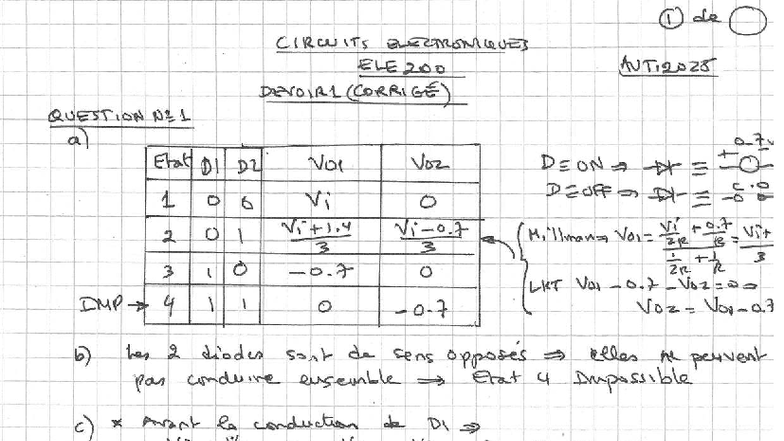 1 de
CIRCUITS ELECTRONIQUES
ELE200
AUT:2025
DEVOIR1 (CORRIGÉ)
QUESTION Nº1
a)
Etat D1 D2 Vo1 Vo2
1 0 0 Vi 0
2 0 1 (Vi+1.4)/3 (Vi-0.7)/3
3 1 0 -0.7 0
IMP → 4 1 1 0 -0.7
D≡ON ⇒ ≡ + 0.7V -
D≡OFF ⇒ ≡ C.O
Millman ⇒ Vo1 = (Vi/2R + 0.7/R)/(1/2R + 1/R) = Vi+ /3
LKT Vo1 - 0.7 - Vo2 = 0 ⇒
Vo2 = Vo1 - 0.7
b) Les 2 diodes sont de sens opposés ⇒ elles ne peuvent
pas conduire ensemble ⇒ Etat 4 Impossible
c) * Avant la conduction de D1 ⇒